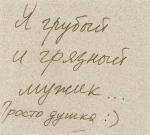 Я грубый
и грязный
мужик...
Просто душка :)